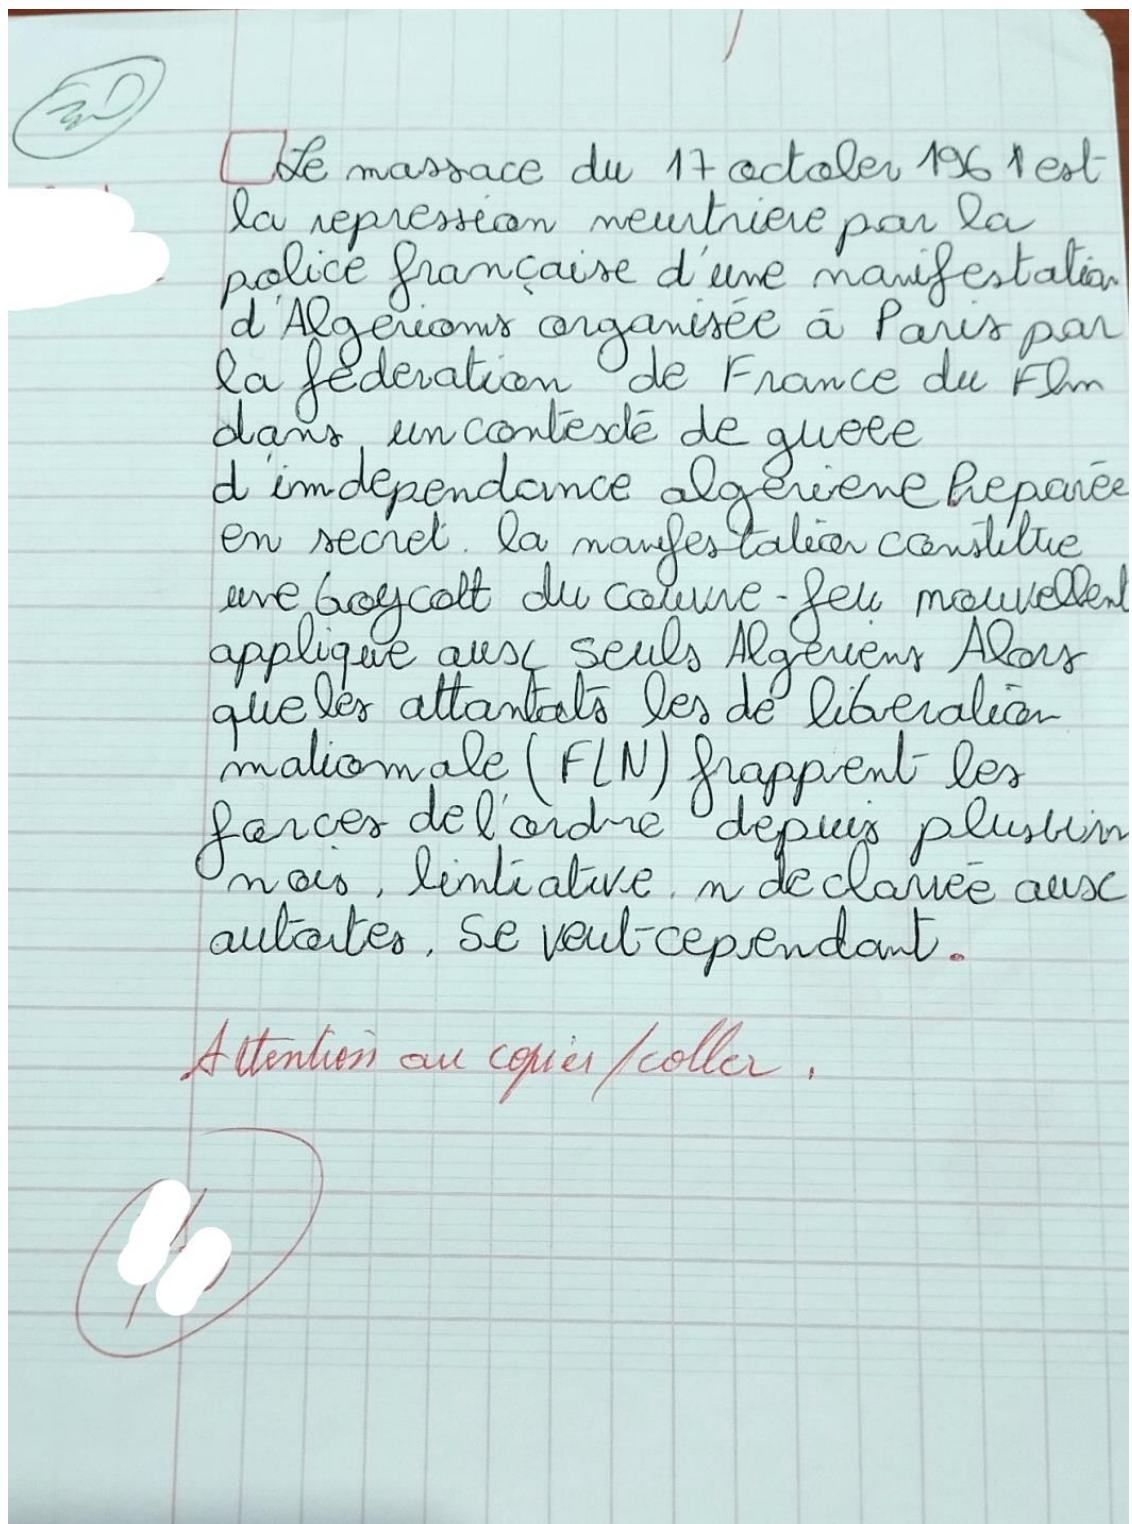 Le massace du 17 octoler 1961 est
la repression meurtriere par la
police française d'une manifestation
d'Algerioms organisée à Paris par
la féderation de France du Flm
dans un contexte de gueee
d'imdependance algerienne Preparée
en secret. la manifestation constitue
une boycott du couvre-feu mouvellent
appliquée aux seuls Algeriens Alors
que les attantats les de liberation
matiomale (FLN) frappent les
forces de l'ordre depuis plusuim
mois, lintiative, n declarée aux
autortes, se veut cependant.
Attention au copier/coller.